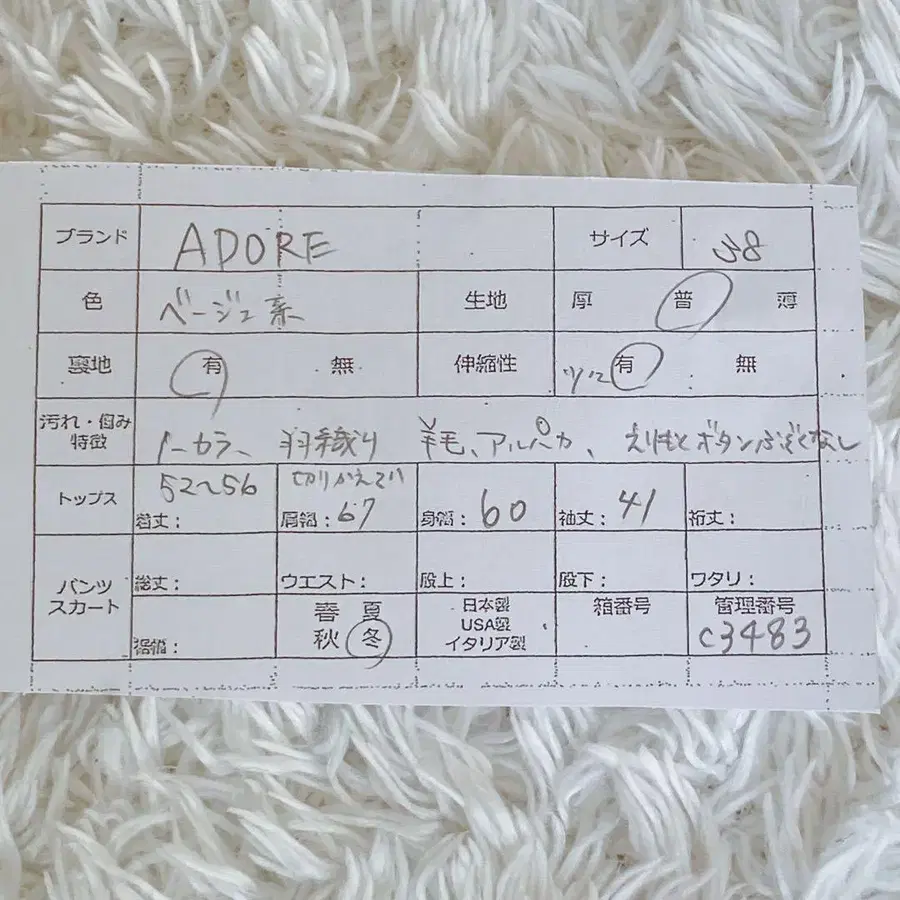 ブランド ADORE サイズ 38
色 ベージュ系 生地 厚 普 薄
裏地 有 無 伸縮性 少々 有 無
汚れ・傷み
特徴 ノーカラー、羽織り 羊毛、アルパカ、えりもとボタンふぞくなし
トップス 着丈: 52〜56 肩幅: 67 身幅: 60 袖丈: 41 裄丈:
パンツ
スカート 総丈: ウエスト: 股上: 股下: ワタリ:
裾幅: 春 夏 秋 冬 日本製 USA製 イタリア製 箱番号 管理番号 C3483